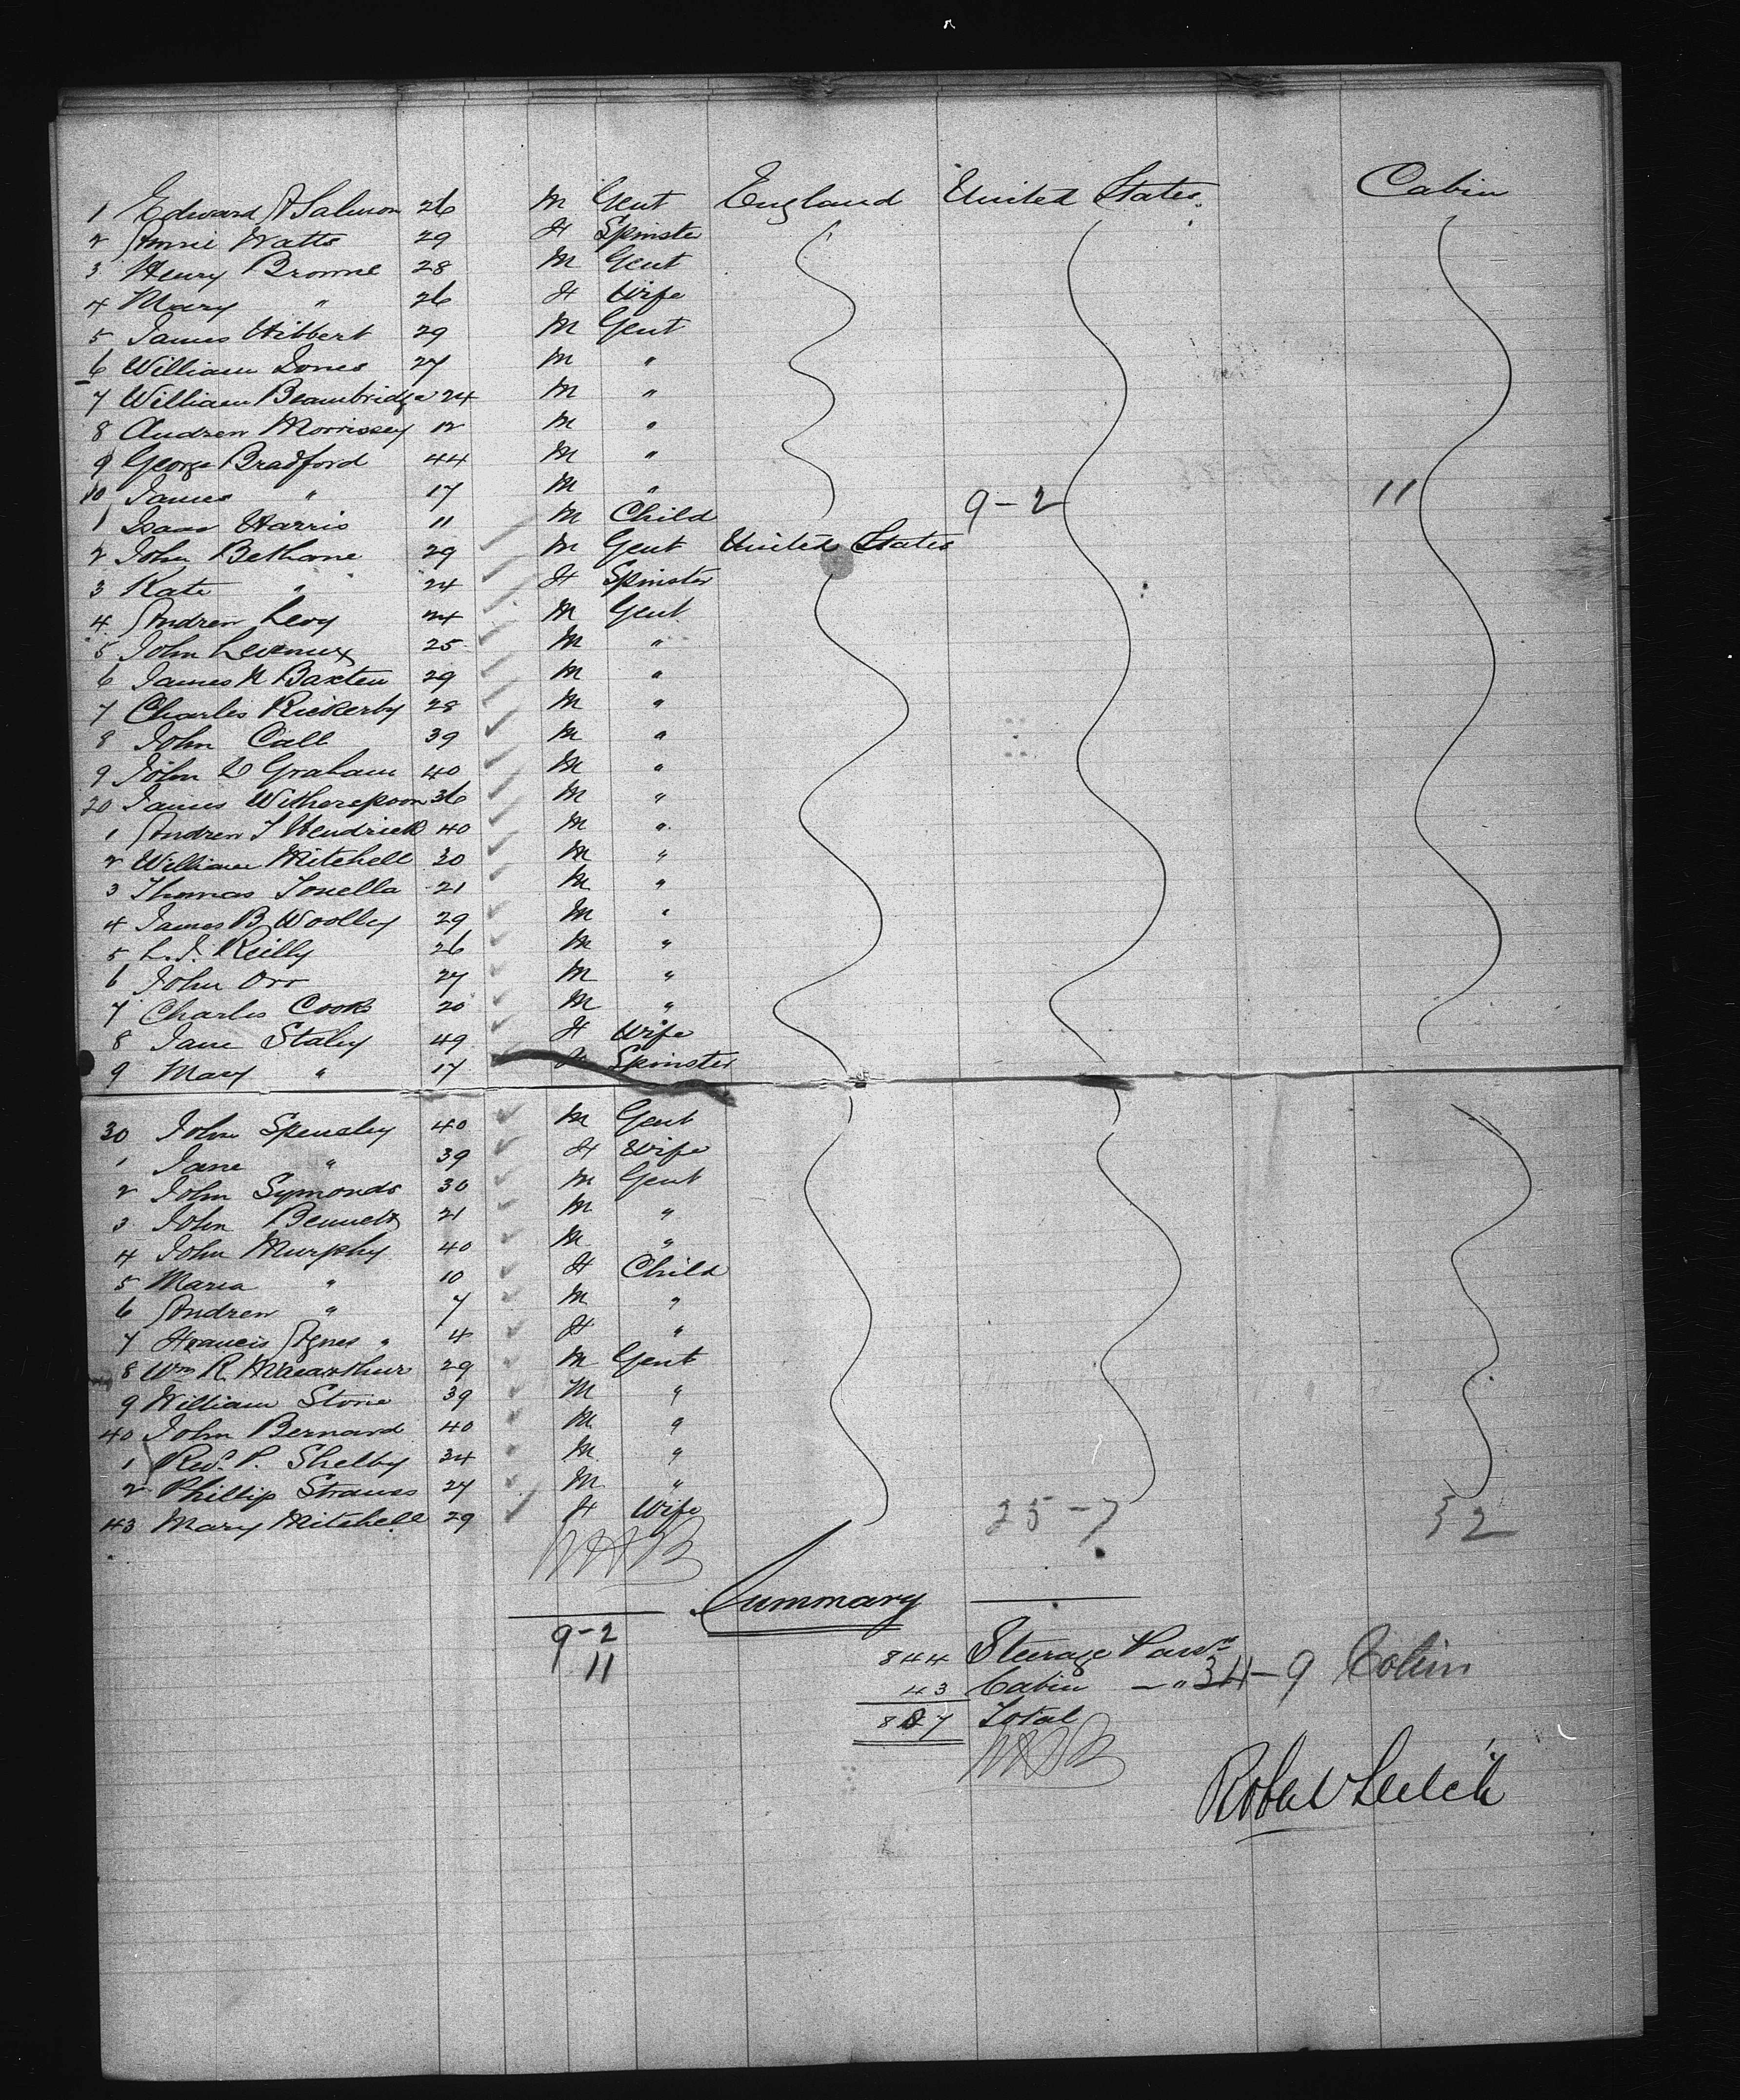 1 Edward A Salmon 26 M Gent England United States. Cabin
2 Annie Watts 29 F Spinster
3 Henry Browne 28 M Gent
4 Mary " 26 F Wife
5 James Hibbert 29 M Gent
6 William Jones 27 M "
7 William Beambridge 24 M "
8 Andrew Morrissey 12 M "
9 George Bradford 44 M "
10 James " 17 M " 9-2 11
1 Isaac Harris 11 M Child
2 John Bethone 29 M Gent United States
3 Kate " 24 F Spinster
4 Andrew Levy 24 M Gent
5 John 25 M "
6 James N Baxter 29 M "
7 Charles Rickerby 28 M "
8 John Call 39 M "
9 John D Graham 40 M "
20 James Witherspoon 36 M "
1 Andrew J Hendrick 40 M "
2 William Mitchell 30 M "
3 Thomas Tonella 21 M "
4 James B Woolley 29 M "
5 L. J. Reilly 26 M "
6 John Orr 27 M "
7 Charles Cook 20 M "
8 Jane Staley 49 F Wife
9 Mary " 17 F Spinster
30 John Spensley 40 M Gent
1 Jane " 39 F Wife
2 John Symonds 30 M Gent
3 John Bennett 21 M "
4 John Murphy 40 M "
5 Maria " 10 F Child
6 Andrew " 7 M "
7 Francis Agnes " 4 F "
8 Wm R. Macarthur 29 M Gent
9 William Stone 39 M "
40 John Bernard 40 M "
1 Revd. P. Shelby 34 M "
2 Phillip Strauss 27 M "
43 Mary Mitchell 29 F Wife 25-7 32
Summary
9-2
11
844 Steerage Passrs
43 Cabin " 34-9 Cabin
887 Total
Robert Leitch